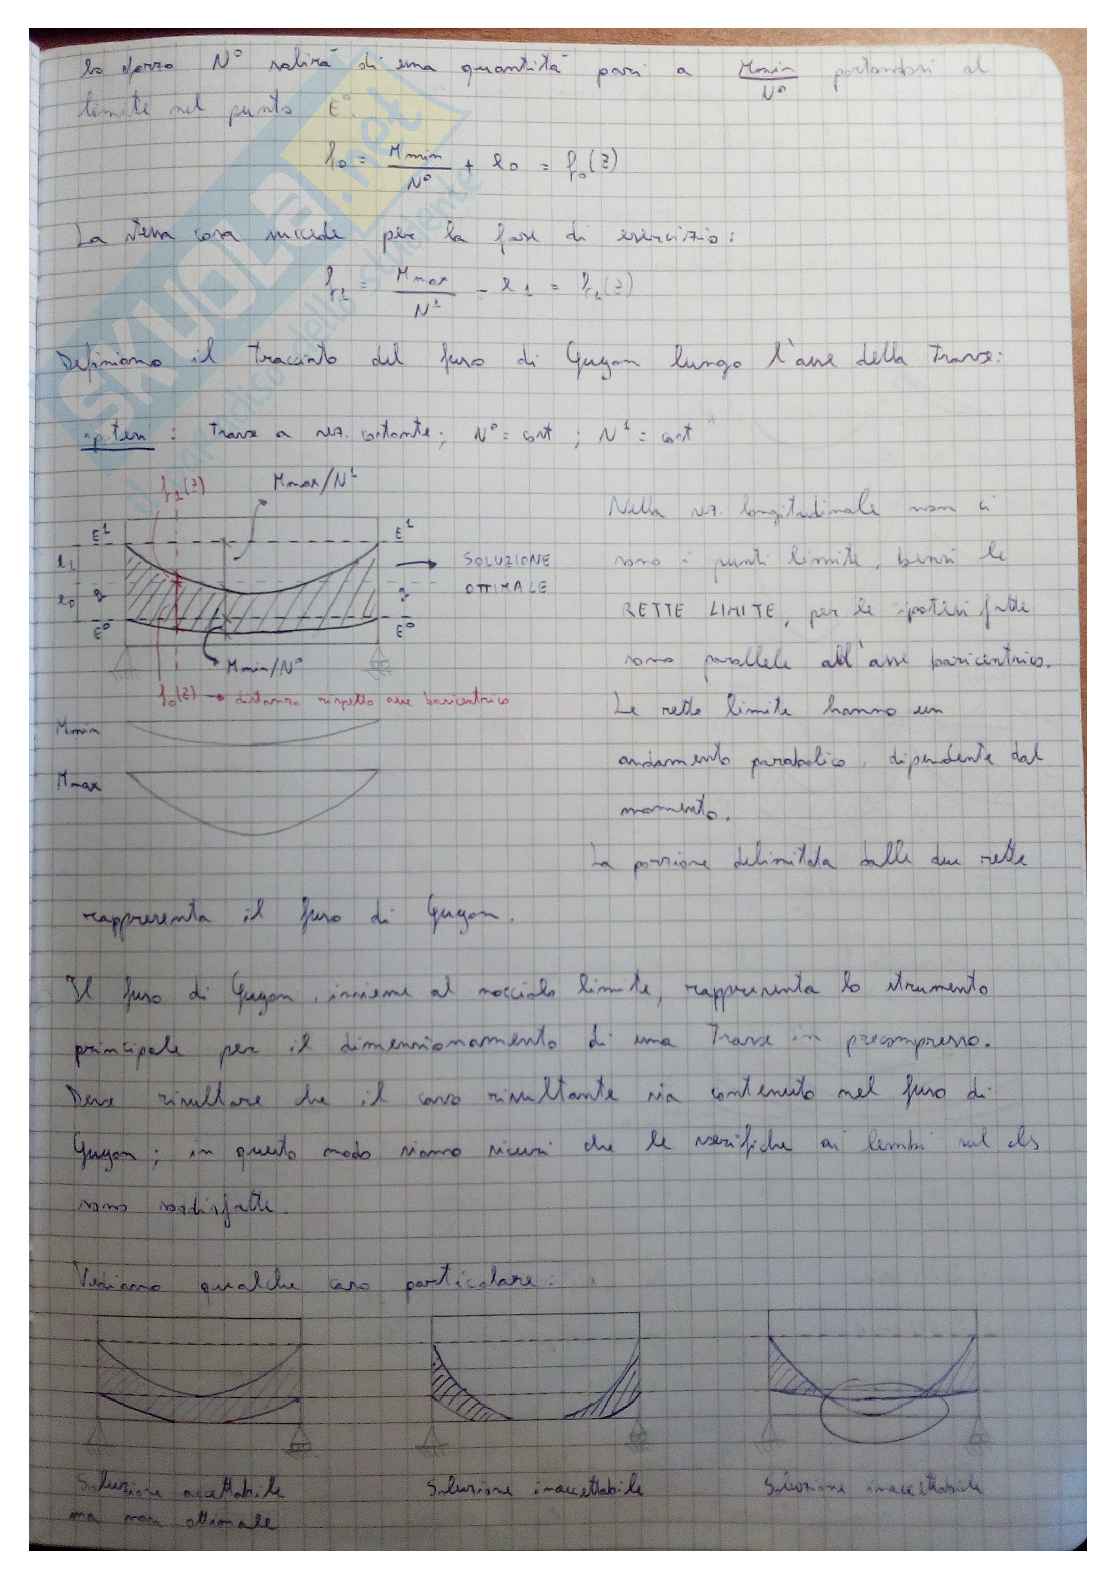 lo sforzo N° salirà di una quantità pari a Mmin/N° portandosi al
limite nel punto E°.
f0 = Mmin/N° + e0 = f0(z)
La stessa cosa succede per la fase di esercizio:
f1 = Mmax/N¹ - e1 = f1(z)
Definiamo il tracciato del fuso di Guyon lungo l'asse della trave:
ipotesi : Trave a sez. costante; N° = cost ; N¹ = cost
f1(z) Mmax/N¹
E¹ E¹
e1
SOLUZIONE
OTTIMALE
e0 g g
E° E°
Mmin/N°
f0(z) → distanza rispetto asse baricentrico
Mmin
Mmax
Nella sez. longitudinale non ci
sono i punti limite, bensì le
RETTE LIMITE, per le ipotesi fatte
sono parallele all'asse baricentrico.
Le rette limite hanno un
andamento parabolico, dipendente dal
momento.
La porzione delimitata dalle due rette
rappresenta il fuso di Guyon.
Il fuso di Guyon, insieme al nocciolo limite, rappresenta lo strumento
principale per il dimensionamento di una Trave in precompresso.
Deve risultare che il cavo risultante sia contenuto nel fuso di
Guyon; in questo modo siamo sicuri che le verifiche ai lembi sul cls
sono soddisfatte.
Vediamo qualche caso particolare:
Soluzione accettabile
ma non ottimale
Soluzione inaccettabile
Soluzione inaccettabile
SKUOLA.net